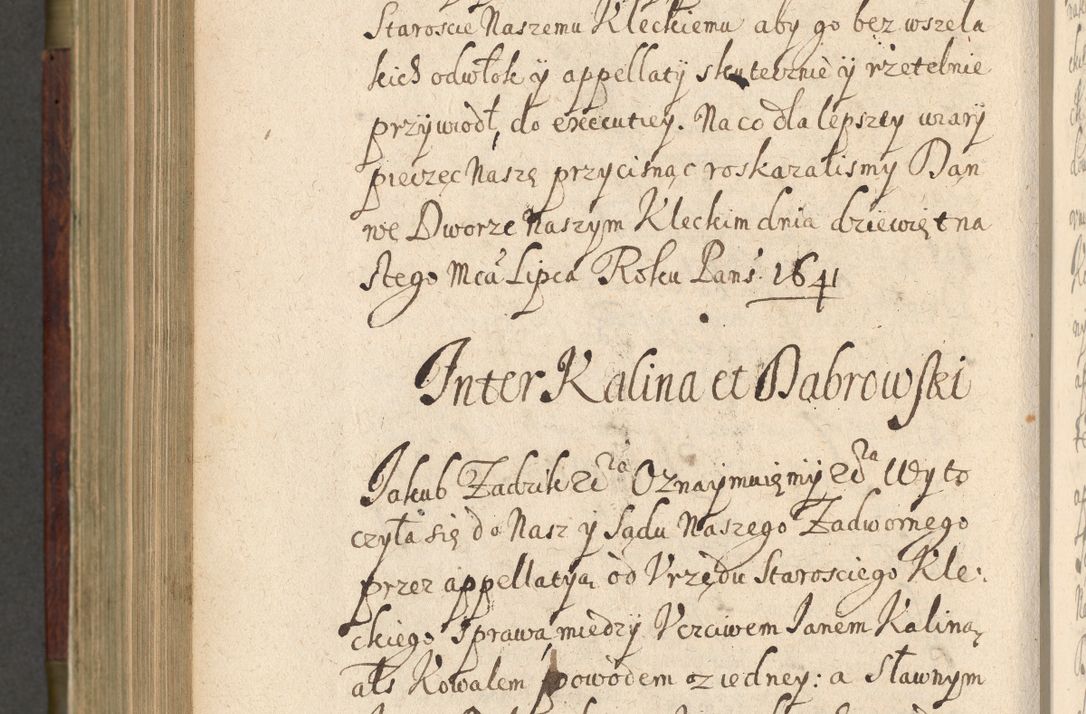 Staroscie Naszemu Kleckiemu aby go bez wszela
kich odwłok y appellaty skutecznie y rzetelnie
przywiodł, do executiey. Na co dla lepszey wiary
pieczęc Naszą przycisnąc roskazalismy Dan
we Dworze Naszym Kleckim dnia dziewiętna
stego Mca Lipca Roku Pans: 1641
Inter Kalina et Dabrowski
Jakub Zadzik &c̃ra Oznaymuięmy &c̃ra Wyto
czyła się do Nasz y Sądu Naszego Zadwornego
przez appellatyą od Vrzędu Starosciego Kle:
ckiego Sprawa, miedzy Vczciwem Janem Kaliną
als Kowalem powodem z iedney: a Sławnym